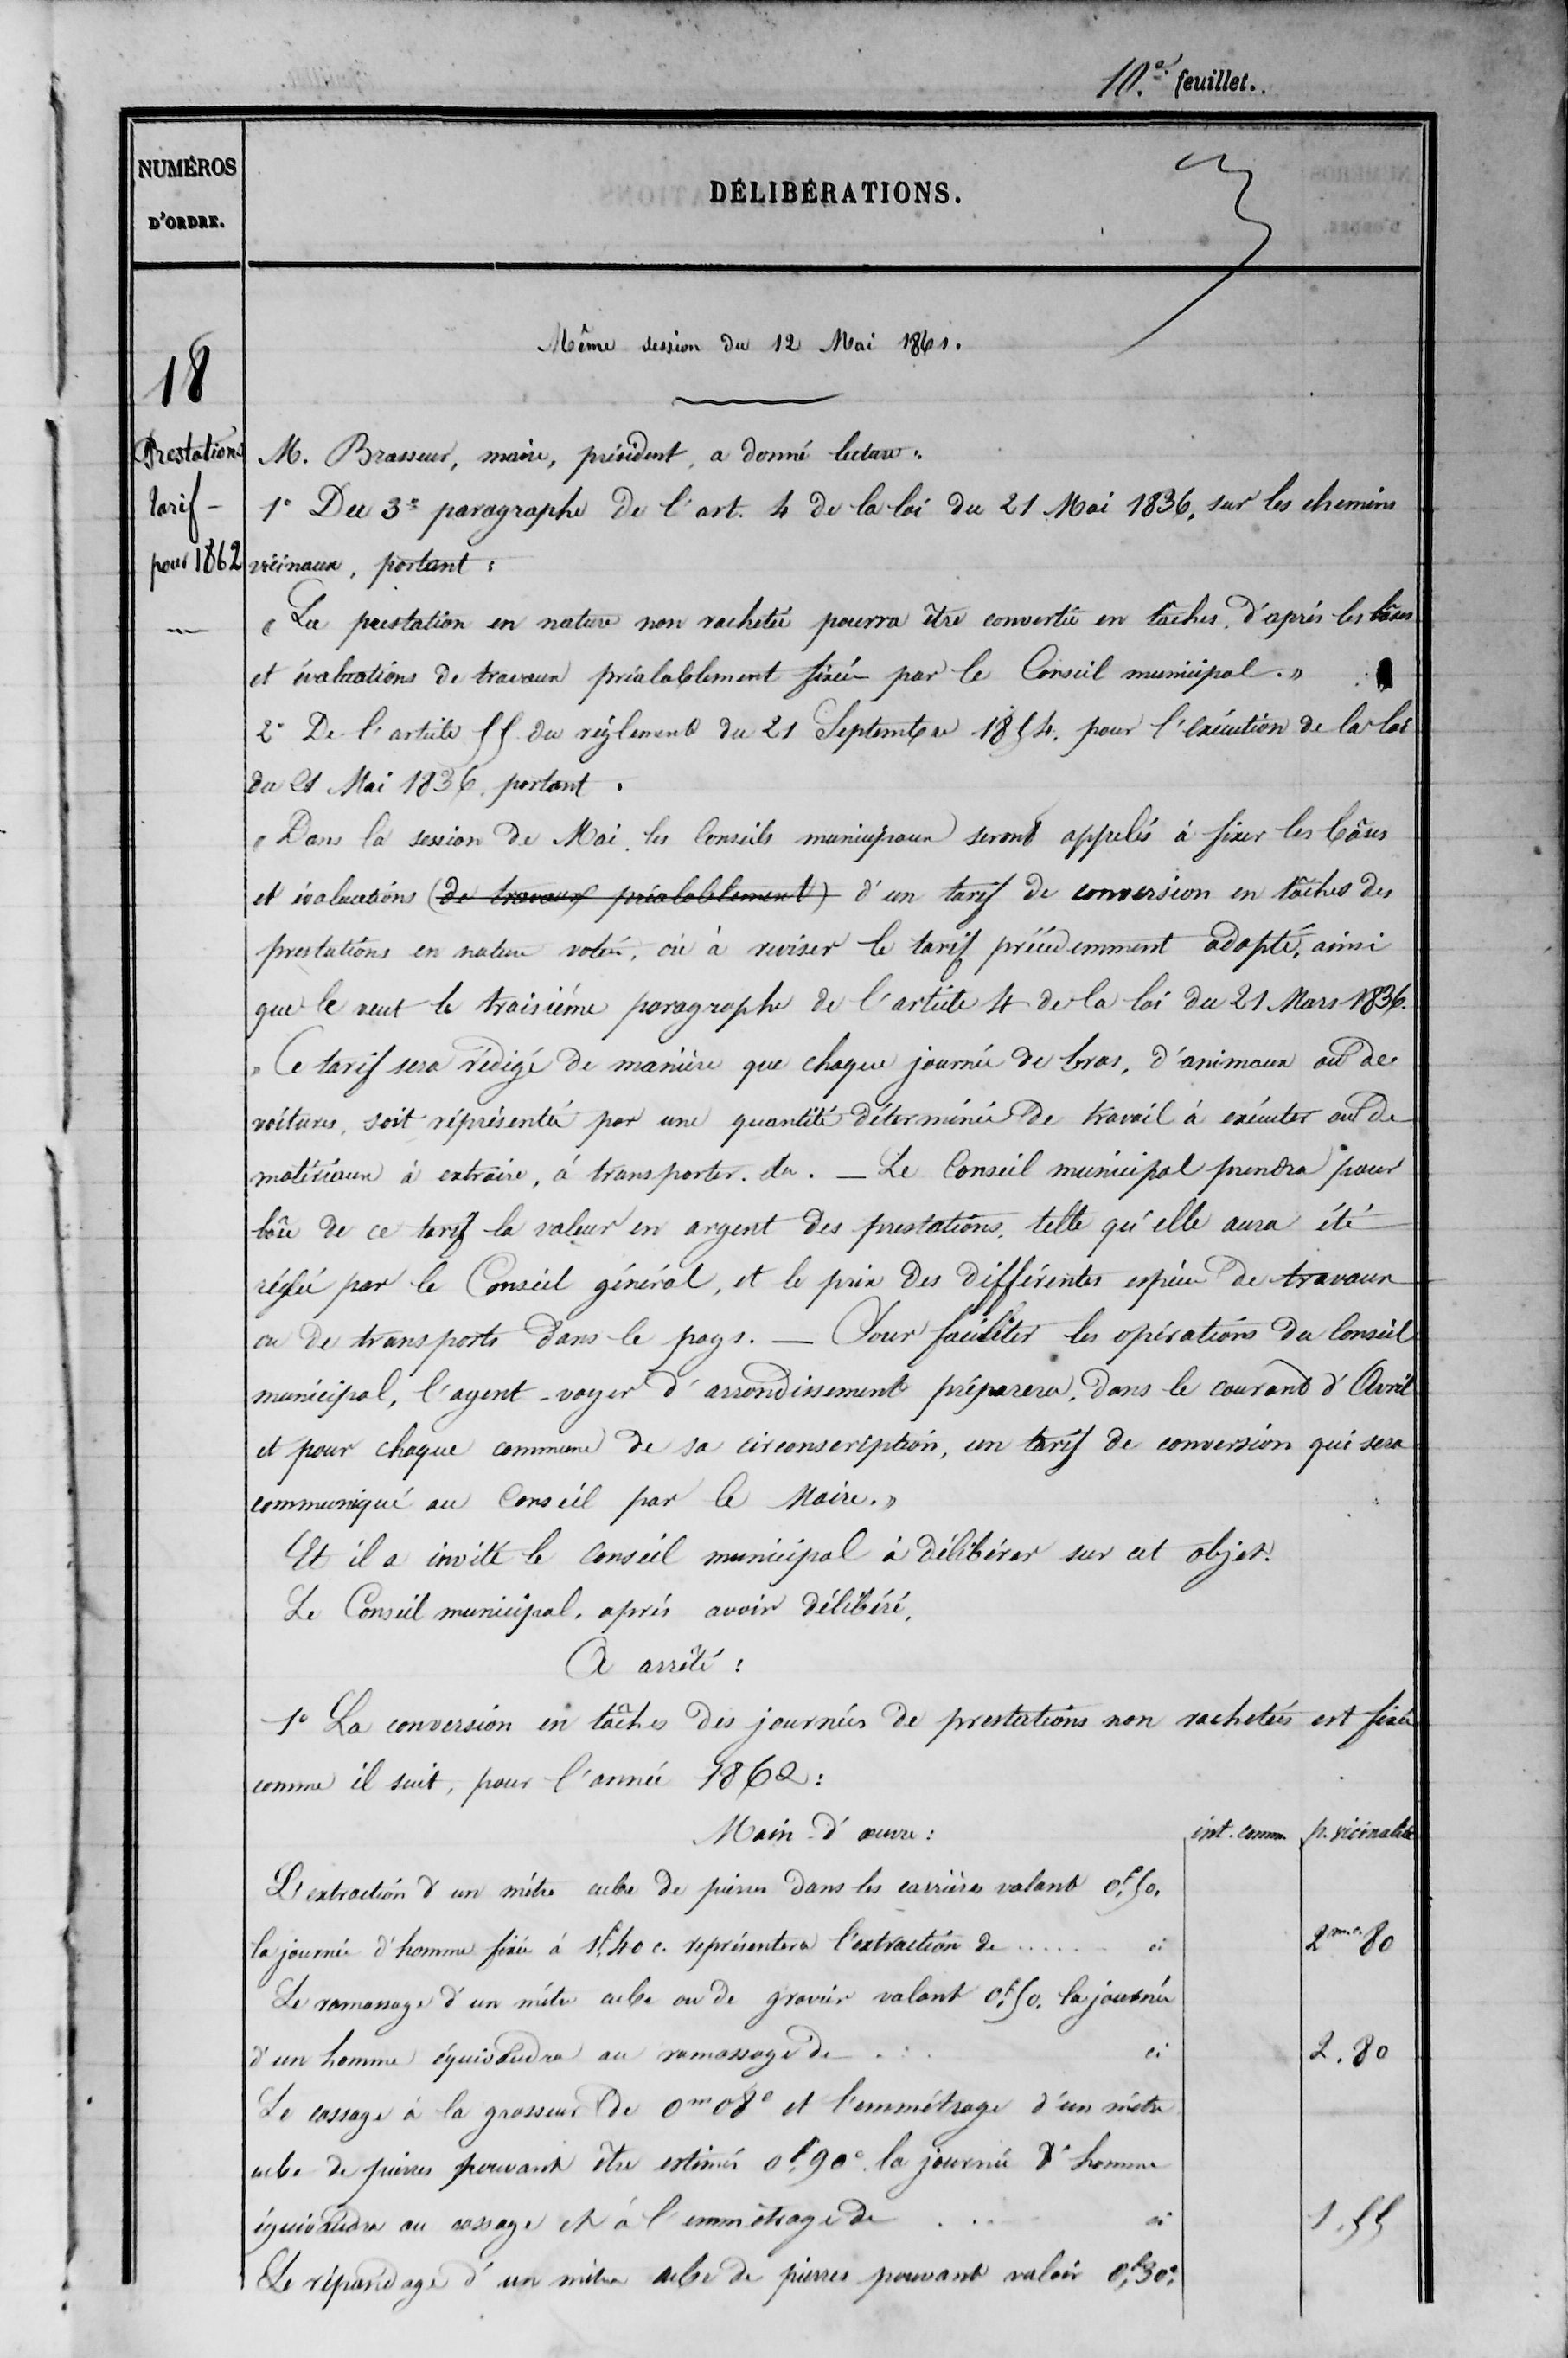 10.e feuillet.
NUMÉROS
D'ORDRE.
DÉLIBÉRATIONS.
Même session du 12 Mai 1861.
18
Prestations
tarif -
pour 1862
M. Brasseur, maire, président, a donné lecture:
1° Du 3e paragraphe de l'art. 4 de la loi du 21 Mai 1836, sur les chemins
vicinaux, portant:
« La prestation en nature non rachetée pourra être convertie en tâches, d'après les bâses
et évaluations de travaux préalablement fixées par le Conseil municipal. »
2° De l'article 55 du réglement du 21 Septembre 1854, pour l'exécution de la loi
du 21 Mai 1836, portant.
« Dans la session de Mai, les Conseils municipaux seront appelés à fixer les bâses
et évaluations (de travaux préalablement) d'un tarif de conversion en tâches des
prestations en nature votées, ou à reviser le tarif précédemment adopté, ainsi
que le veut le troisième paragraphe de l'article 4 de la loi du 21 Mars 1836.
» Ce tarif sera rédigé de manière que chaque journée de bras, d'animaux ou de
voitures, soit réprésentée par une quantité déterminée de travail à exécuter ou de
matériaux à extraire, à transporter. etc. — Le Conseil municipal prendra pour
bâse de ce tarif la valeur en argent des prestations, telle qu'elle aura été
réglée par le Conseil général, et le prix des différentes espèces de travaux
ou de transports dans le pays. — Pour faciliter les opérations du Conseil
municipal, l'agent-voyer d'arrondissement préparera, dans le courant d'Avril
et pour chaque commune de sa circonscription, un tarif de conversion qui sera
communiqué au Conseil par le Maire. »
Et il a invité le Conseil municipal à délibérer sur cet objet.
Le Conseil municipal, après avoir délibéré,
A arrêté:
1° La conversion en tâches des journées de prestations non rachetées est fixée
comme il suit, pour l'année 1862:
Main-d'œuvre: int. comm. p. vicinalité
L'extraction d'un mètre cube de pierres dans les carrières valant 0f,50,
la journée d'homme fixée à 1f,40 c. représentera l'extraction de ..... ci 2m.c. 80
Le ramassage d'un mètre cube ou de gravier valant 0f,50, la journée
d'un homme équivaudra au ramassage de ... ci 2. 80
Le cassage à la grosseur de 0m 08c et l'emmétrage d'un mètre
cube de pierres pouvant être estimés 0f,90c la journée d'homme
équivaudra au cassage et à l'emmétrage de ... ci 1. 55
Le répandage d'un mètre cube de pierres pouvant valoir 0f,30c,